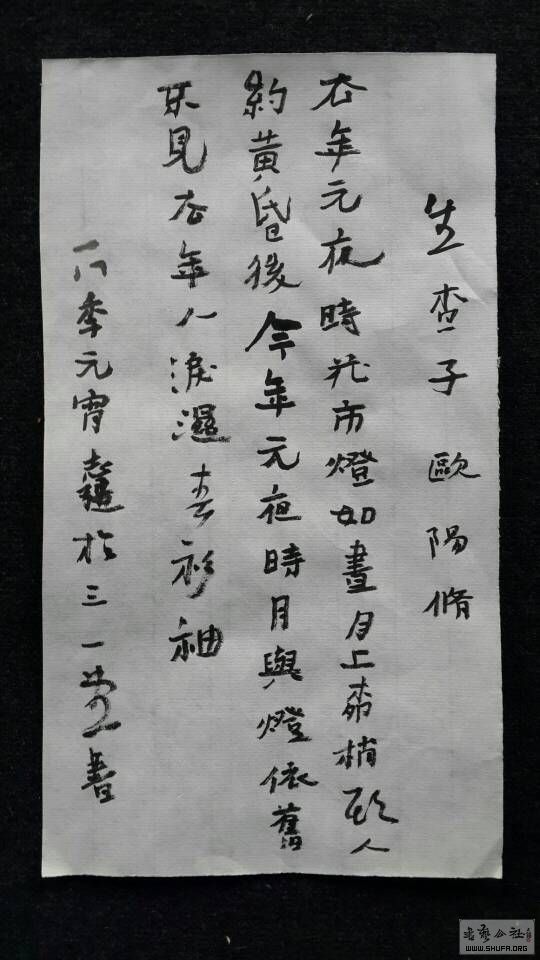 生查子歐陽脩
去年元夜時花市燈如晝月上柳梢頭人
約黃昏後今年元夜時月與燈依舊
不見去年人淚濕春衫袖
一八秊元宵於三一堂書
书艺公社
WWW.SHUFA.ORG